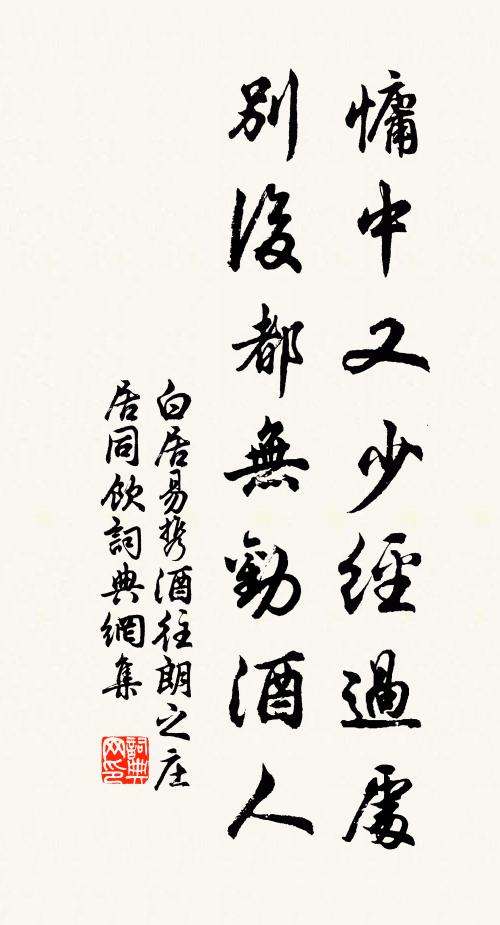 慵中又少經過處
別後都無勸酒人
白居易攜酒往朗之庄
居同飲詞典網集
詞典
网印